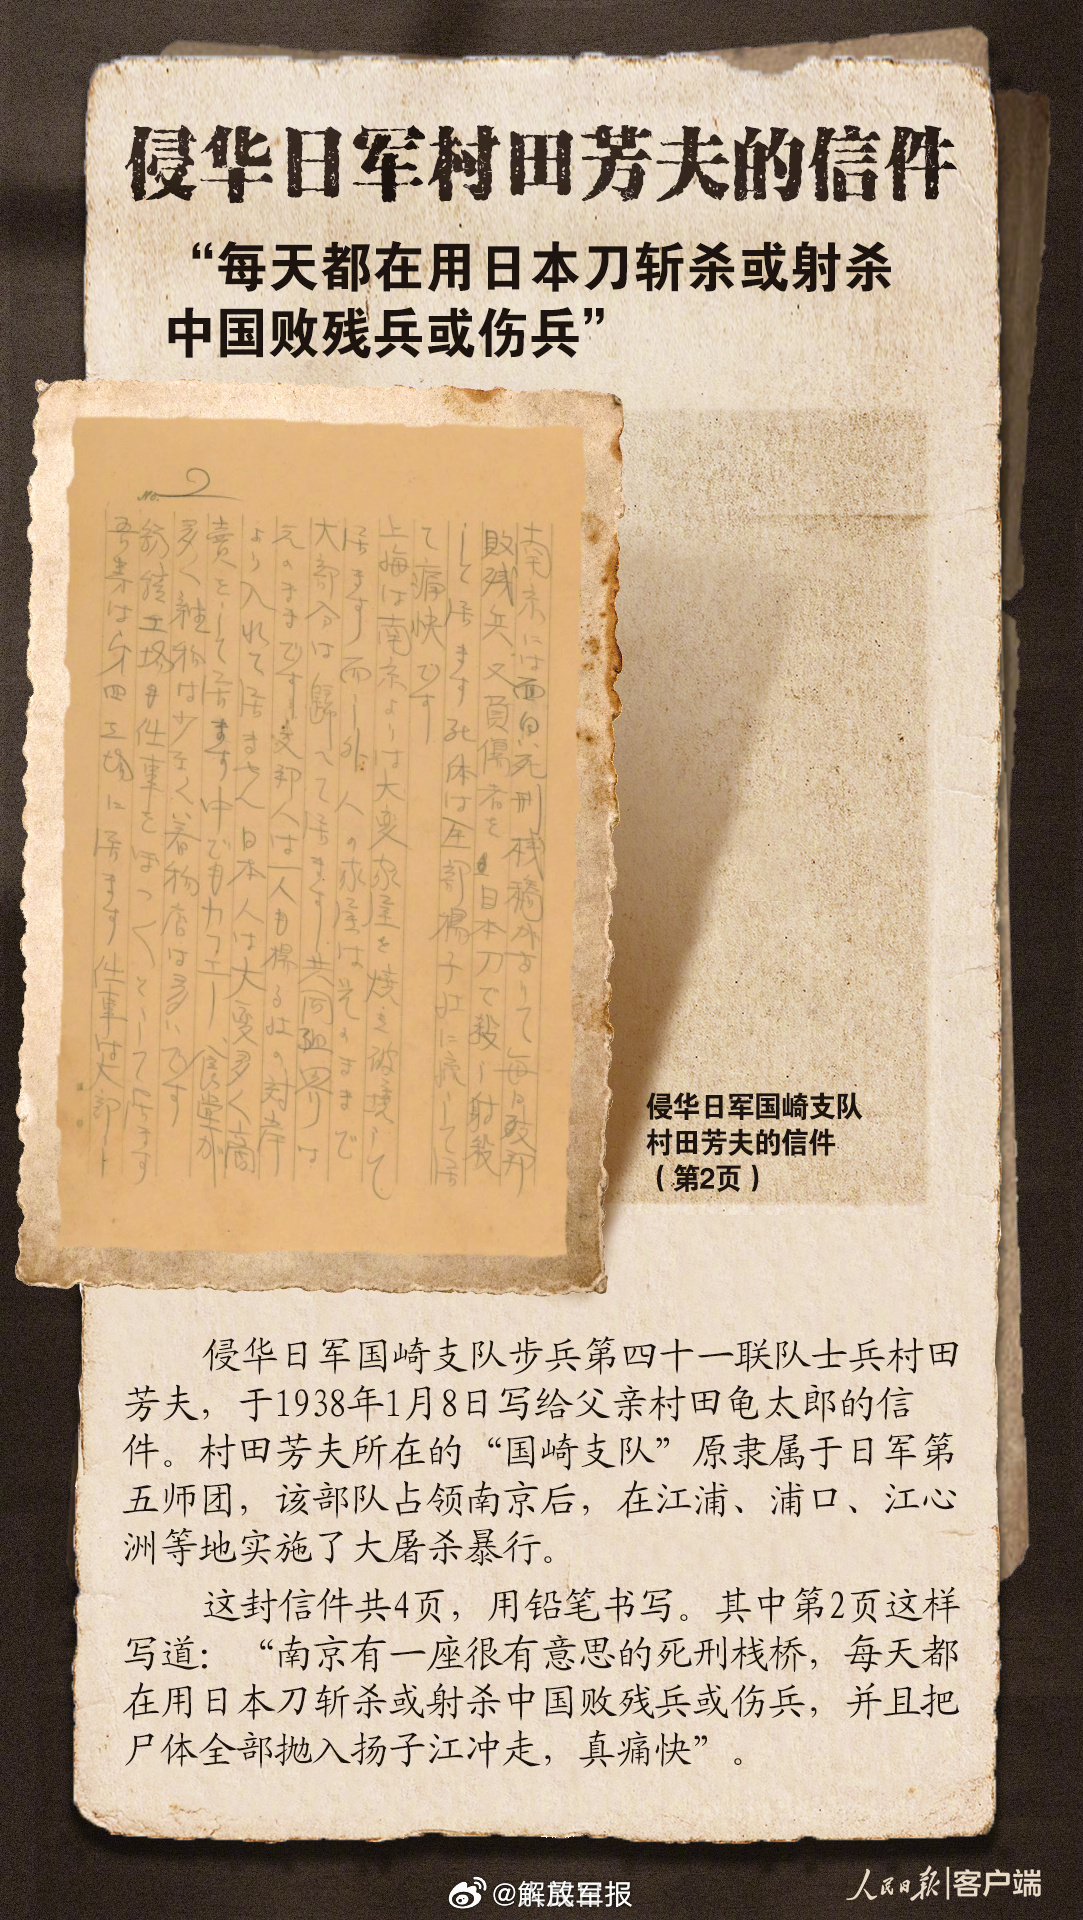 侵华日军村田芳夫的信件
“每天都在用日本刀斩杀或射杀
中国败残兵或伤兵”
No. 2
南京には面白い死刑桟橋があつて毎日支那
敗残兵又負傷者を日本刀で殺し射殺
して居ます死体は全部揚子江に流して居
て痛快です
上海は南京よりは大変家屋を焼き破壊して
居ます而し外人の家屋は元のままで
大部分は帰へて居ます共同租界は
元のままです支那人は一人も揚子江の対岸
より入れて居ません日本人は大変多く商
売をして居ます中でもカフエー、食堂が
多く
着物店は多いです
紡績工場も仕事をぼつ〱として居ます
は第四工場に居ます仕事は大部
侵华日军国崎支队
村田芳夫的信件
（第2页）
侵华日军国崎支队步兵第四十一联队士兵村田
芳夫，于1938年1月8日写给父亲村田龟太郎的信
件。村田芳夫所在的“国崎支队”原隶属于日军第
五师团，该部队占领南京后，在江浦、浦口、江心
洲等地实施了大屠杀暴行。
这封信件共4页，用铅笔书写。其中第2页这样
写道：“南京有一座很有意思的死刑栈桥，每天都
在用日本刀斩杀或射杀中国败残兵或伤兵，并且把
尸体全部抛入扬子江冲走，真痛快”。
@解放军报
人民日报|客户端